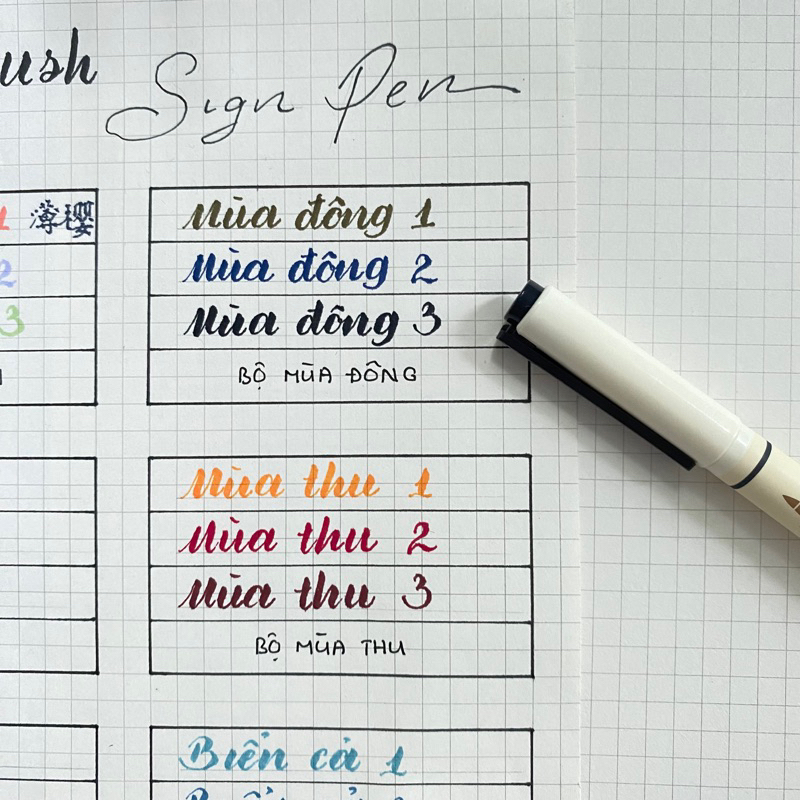 ush Sign Pen
1 薄櫻
2
3
Mùa đông 1
Mùa đông 2
Mùa đông 3
BỘ MÙA ĐÔNG
Mùa thu 1
Mùa thu 2
Mùa thu 3
BỘ MÙA THU
Biển cả 1